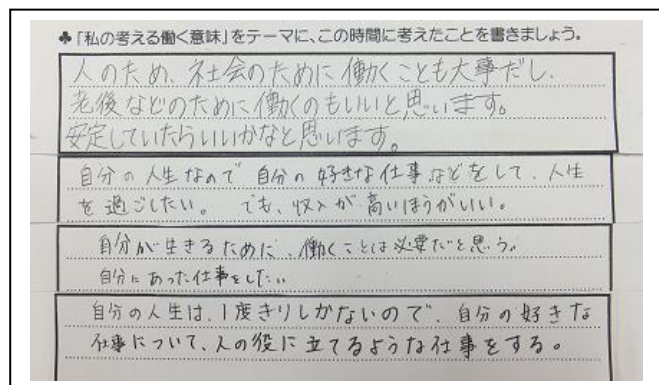 ♣「私の考える働く意味」をテーマに、この時間に考えたことを書きましょう。
人のため、社会のために働くことも大事だし、
老後などのために働くのもいいと思います。
安定していたらいいかなと思います。
自分の人生なので自分の好きな仕事などをして、人生
を過ごしたい。でも、収入が高いほうがいい。
自分が生きるために、働くことは必要だと思う。
自分にあった仕事をしたい
自分の人生は、1度きりしかないので、自分の好きな
仕事について、人の役に立てるような仕事をする。